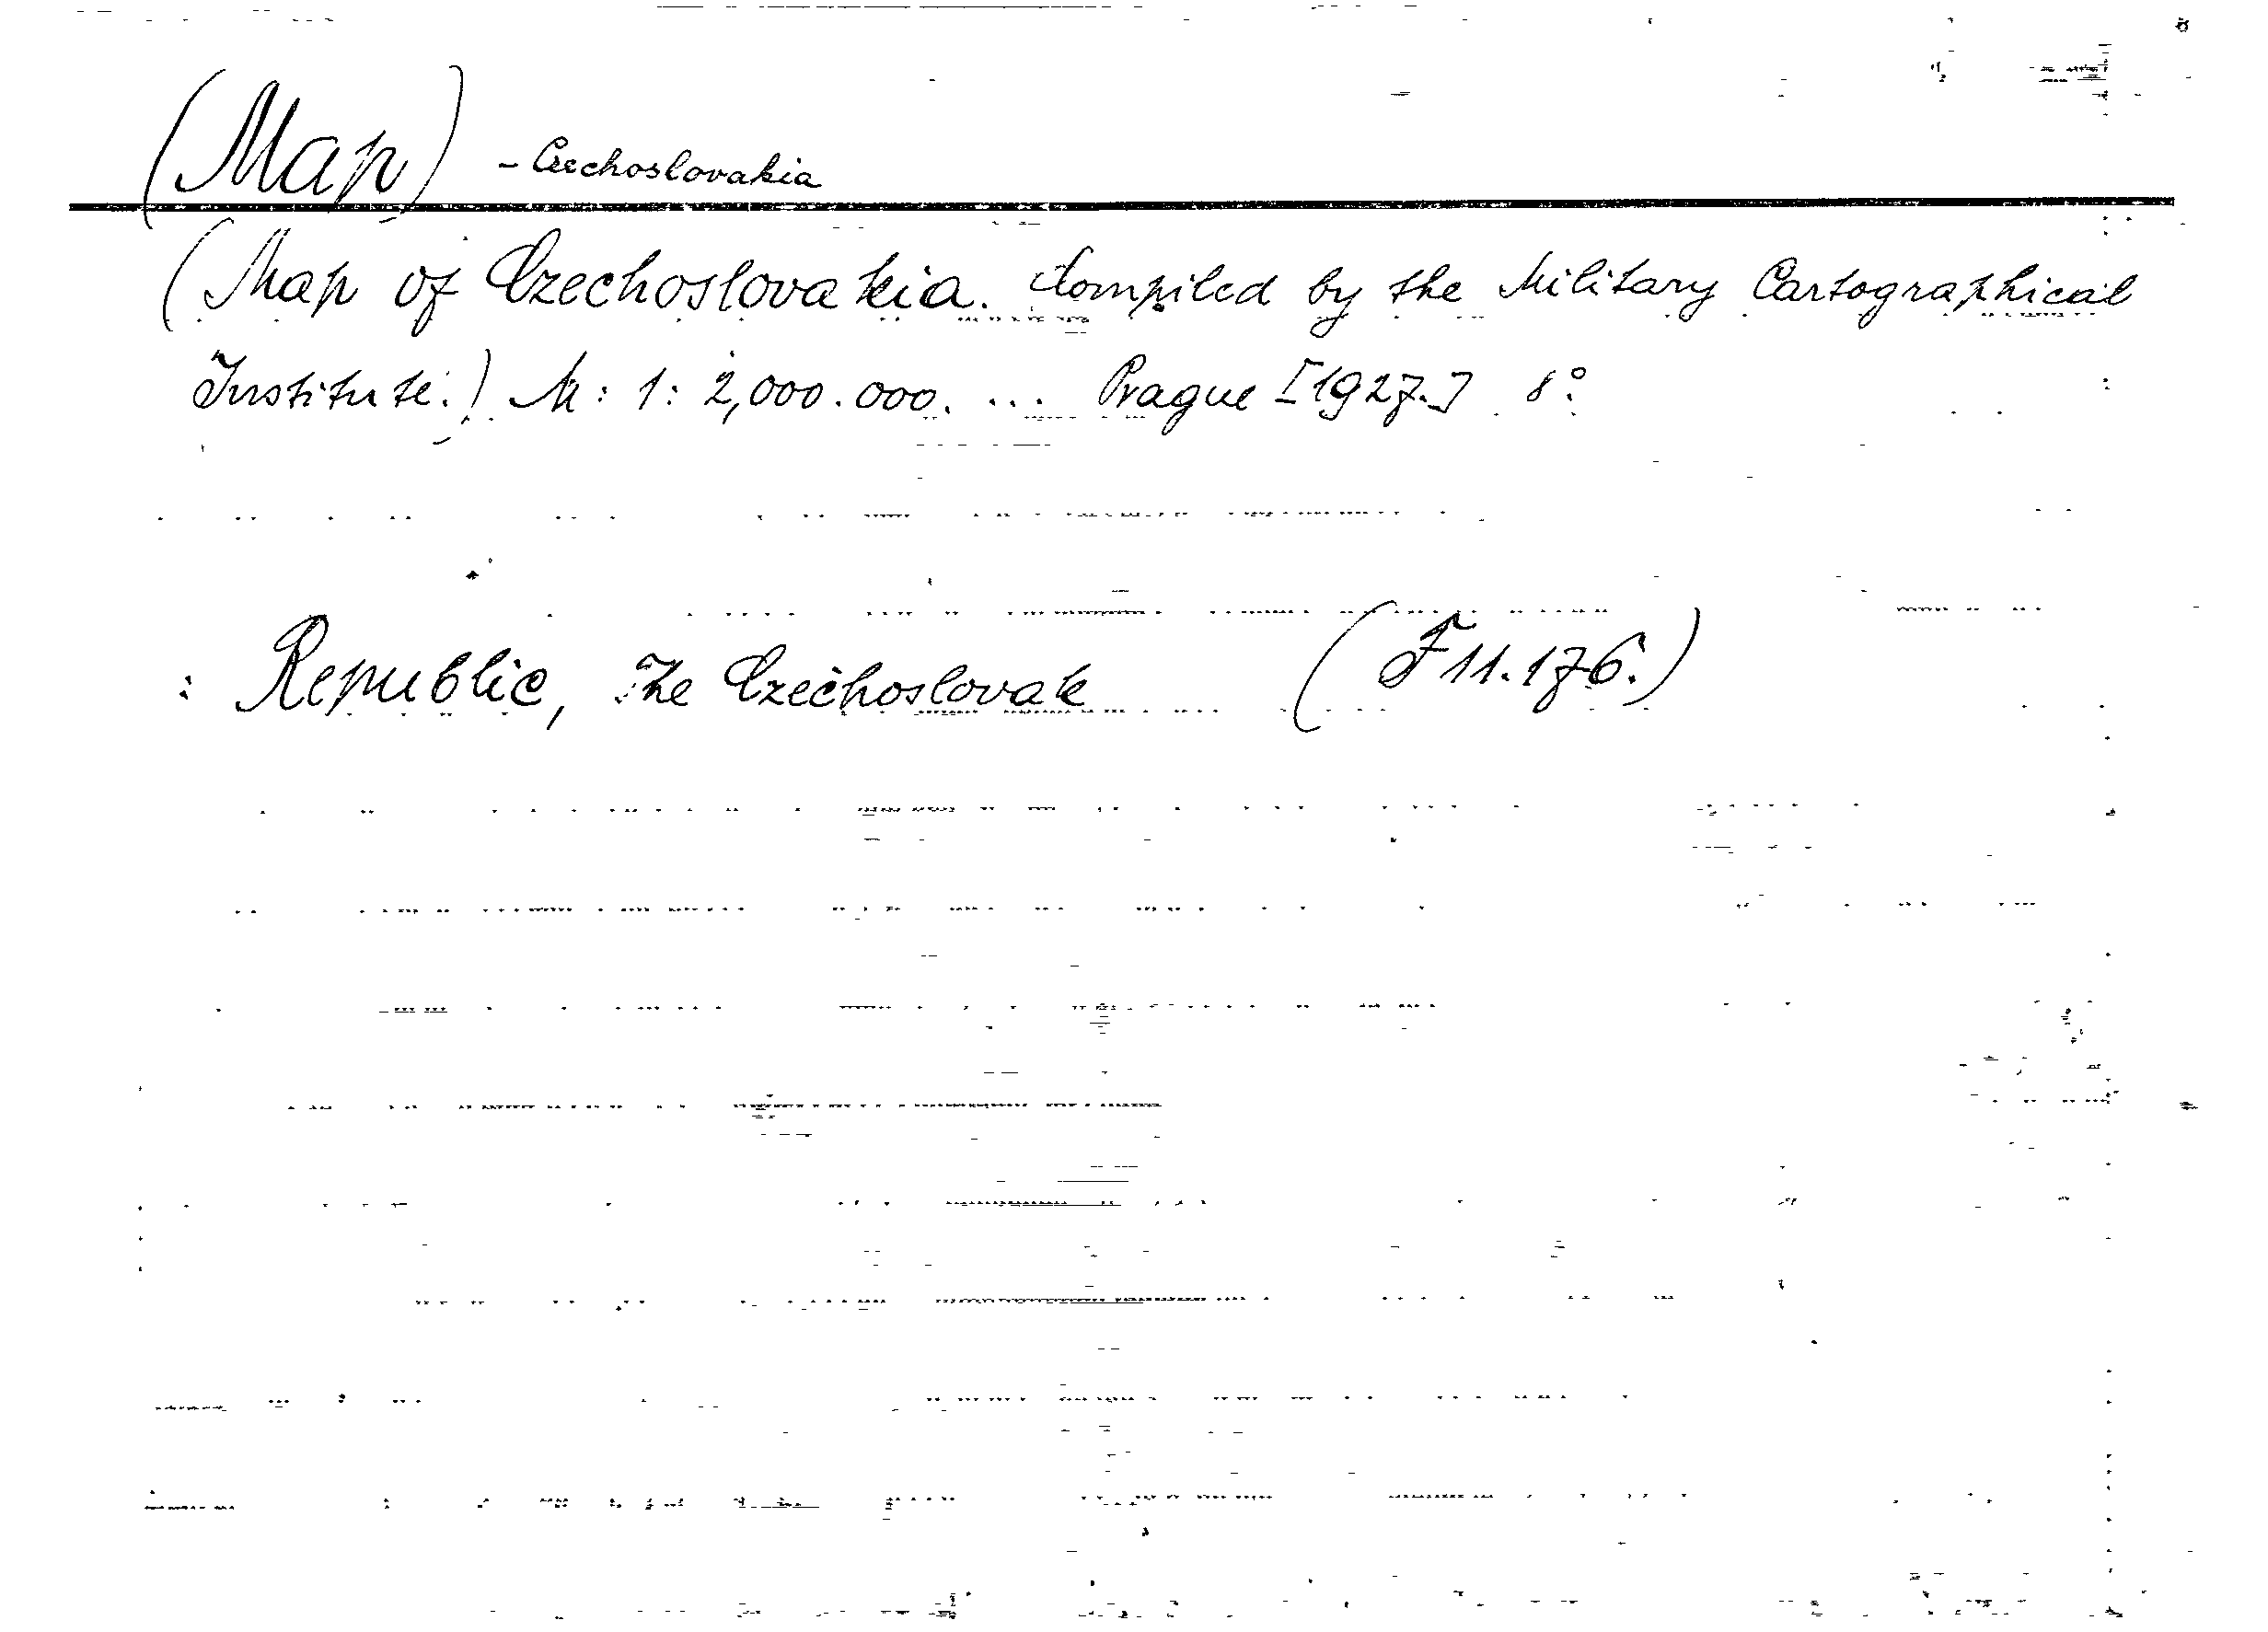 (Map) - Czechoslovakia
(Map of Czechoslovakia. Compiled by the Military Cartographical
Institute.) M: 1: 2,000.000. ... Prague [1927.] 8°
: Republic, The Czechoslovak (F 11.176.)